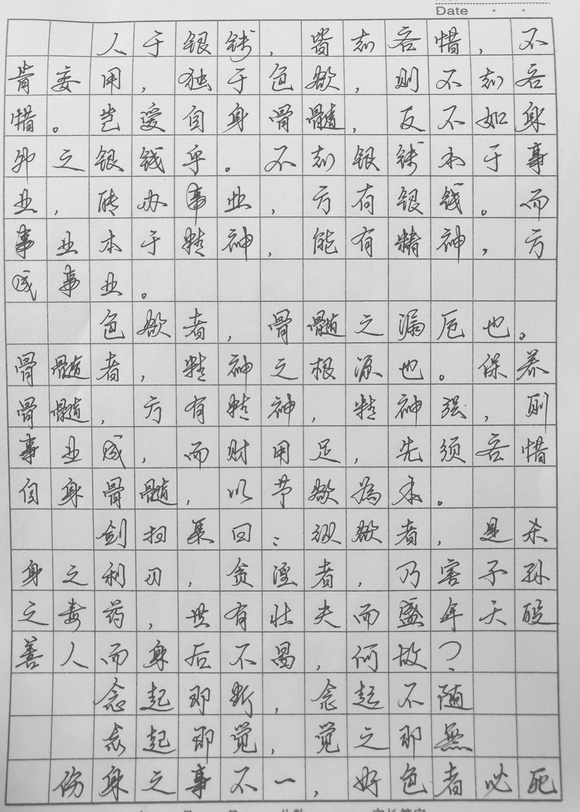 Date
人于银钱，皆知吝惜，不
肯妄用，独于色欲，则不知吝
惜。岂爱自身骨髓，反不如身
外之银钱乎。不知银钱本于事
业，能办事业，方有银钱。而
事业本于精神，能有精神，方
成事业。
色欲者，骨髓之漏卮也。
骨髓者，精神之根源也。保养
骨髓，方有精神，精神强，则
事业成，而财用足，先须吝惜
自身骨髓，以节欲为本。
剑扫集曰：纵欲者，是杀
身之利刃，贪淫者，乃害子孙
之毒药，世有壮夫而盛年夭殁
善人而身后不昌，何故？
念起即断，念起不随
念起即觉，觉之即無
伤身之事不一，好色者必死